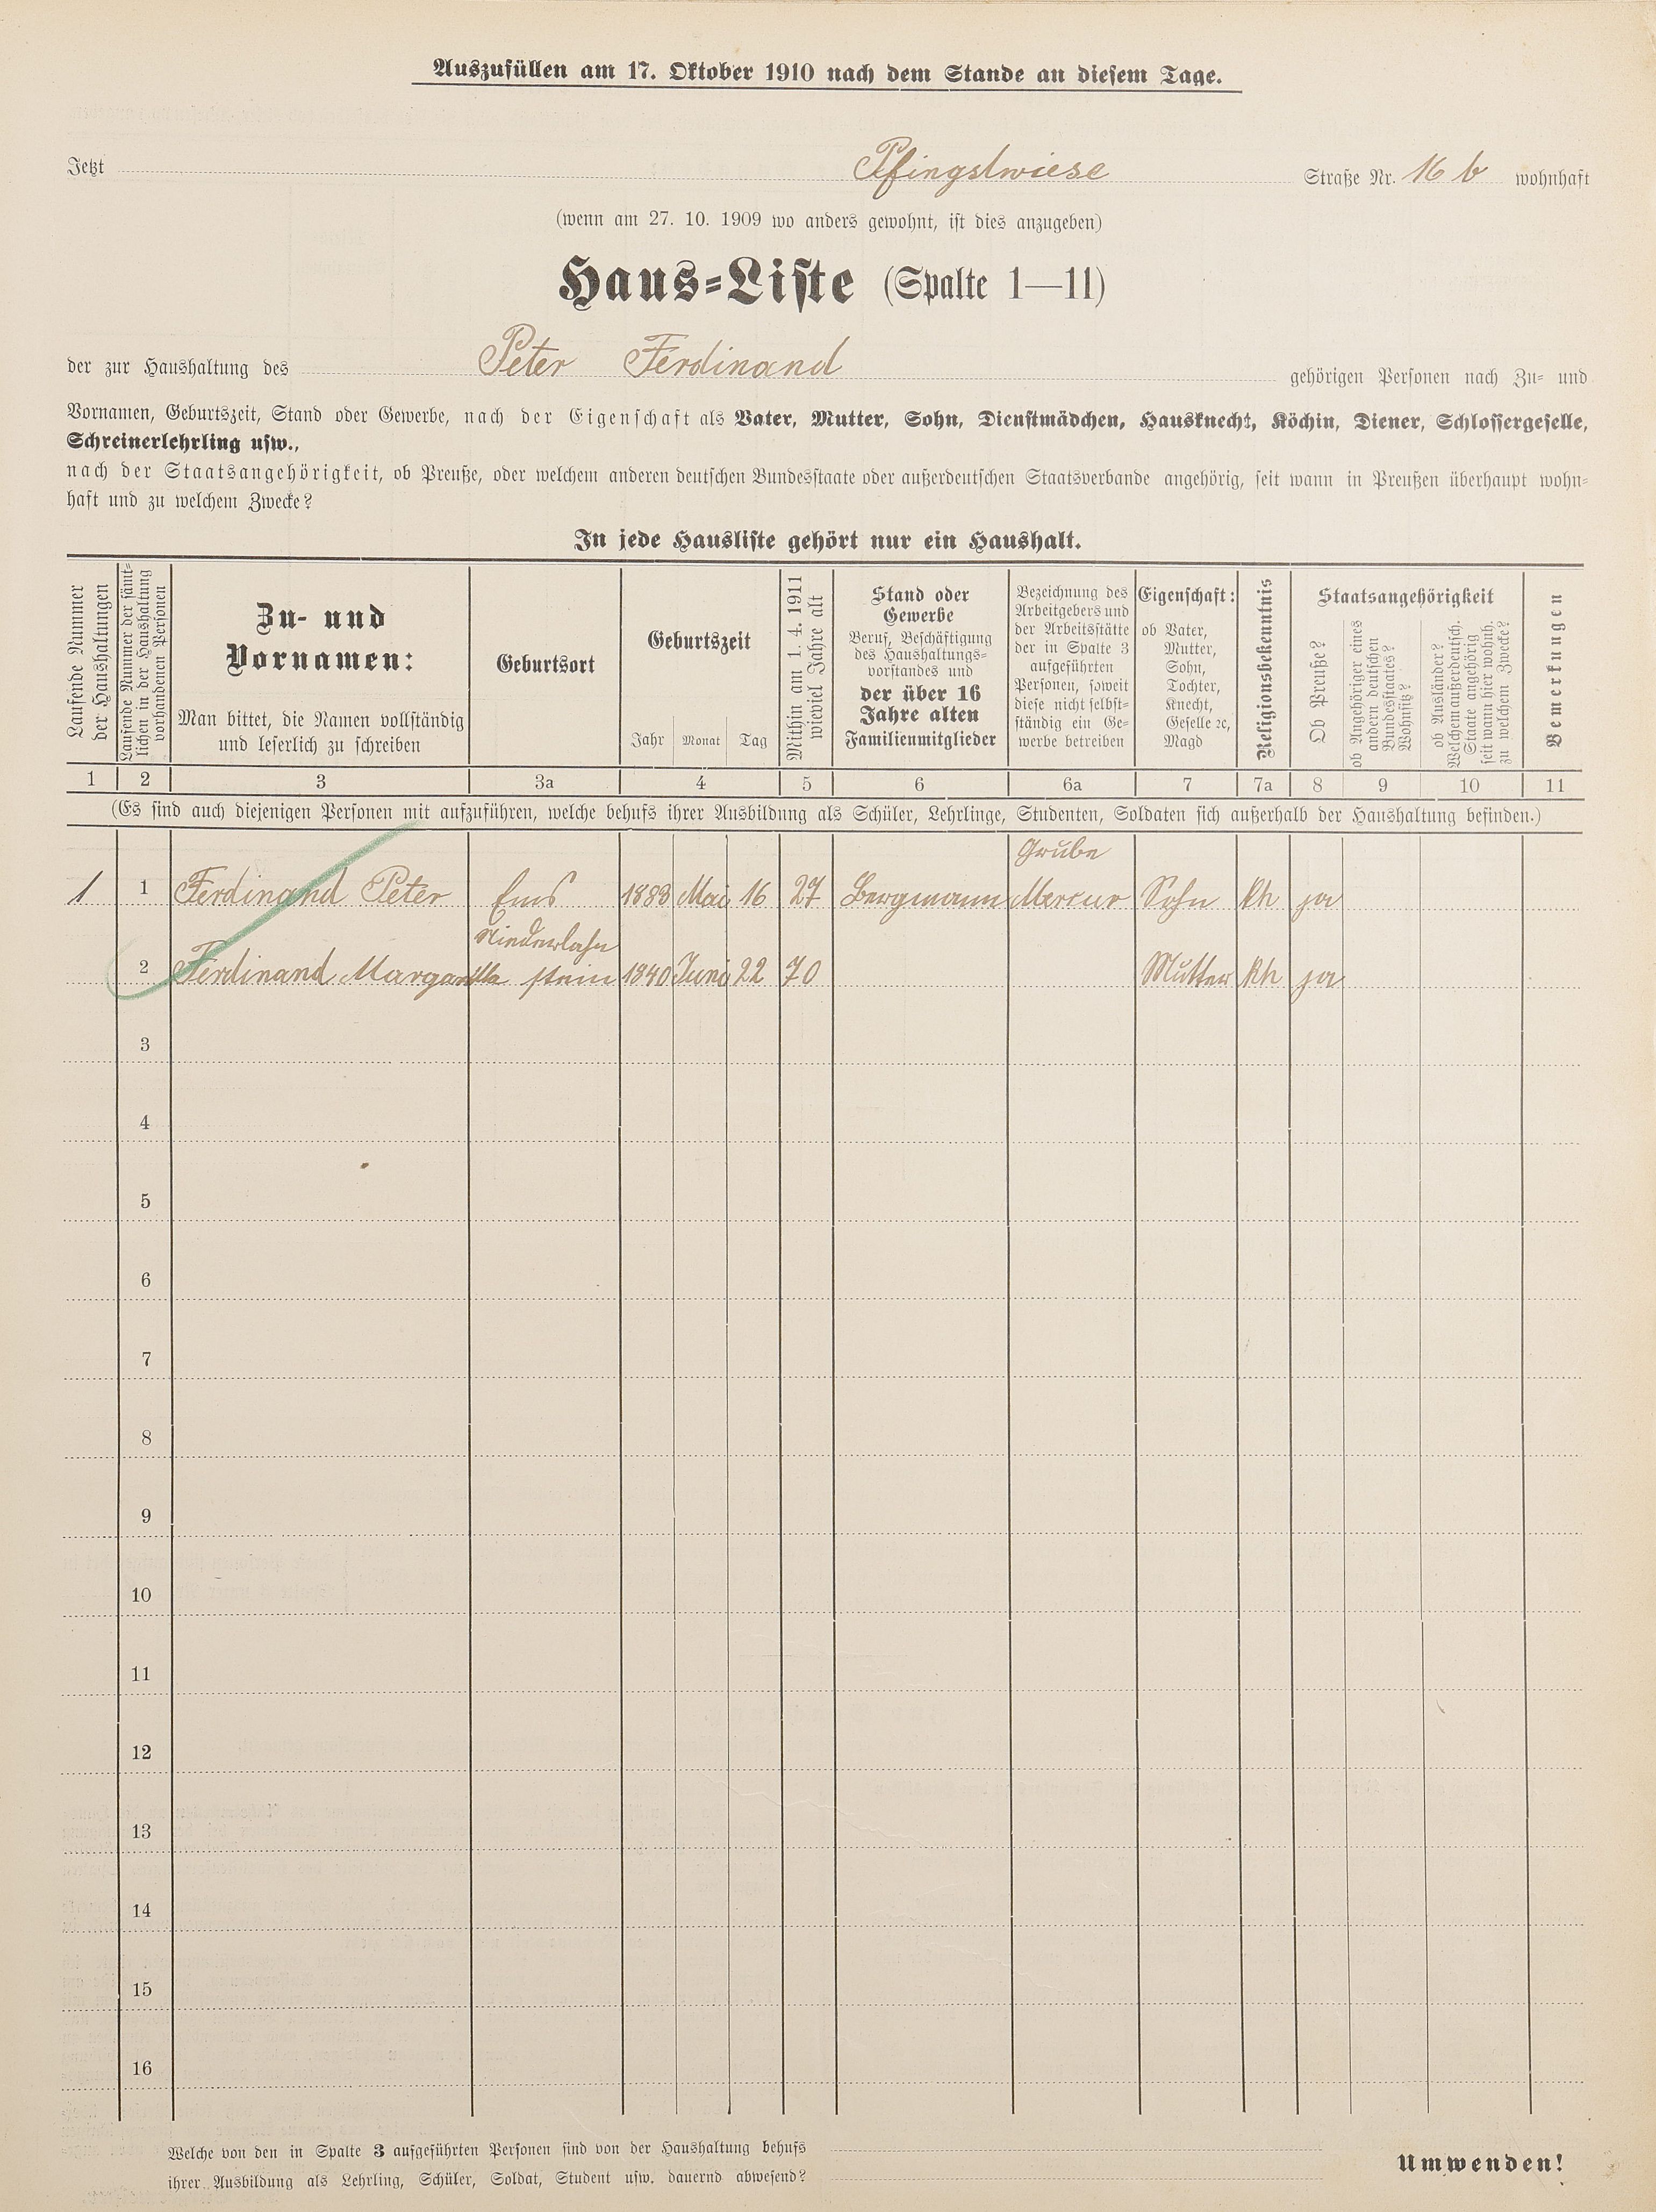 Auszufüllen am 17. Oktober 1910 nach dem Stande an diesem Tage.
Jetzt Pfingstwiese Straße Nr. 16 b wohnhaft
(wenn am 27. 10. 1909 wo anders gewohnt, ist dies anzugeben)
Haus-Liste (Spalte 1—11)
der zur Haushaltung des Peter Ferdinand gehörigen Personen nach Zu- und
Vornamen, Geburtszeit, Stand oder Gewerbe, nach der Eigenschaft als Vater, Mutter, Sohn, Dienstmädchen, Hausknecht, Köchin, Diener, Schlossergeselle,
Schreinerlehrling usw.,
nach der Staatsangehörigkeit, ob Preuße, oder welchem anderen deutschen Bundesstaate oder außerdeutschen Staatsverbande angehörig, seit wann in Preußen überhaupt wohn-
haft und zu welchem Zwecke?
In jede Hausliste gehört nur ein Haushalt.
Laufende Nummer
der Haushaltungen
Laufende Nummer der sämt-
lichen in der Haushaltung
vorhandenen Personen
Zu- und
Vornamen:
Man bittet, die Namen vollständig
und leserlich zu schreiben
Geburtsort
Geburtszeit
Jahr Monat Tag
Mithin am 1. 4. 1911
wieviel Jahre alt
Stand oder
Gewerbe
Beruf, Beschäftigung
des Haushaltungs-
vorstandes und
der über 16
Jahre alten
Familienmitglieder
Bezeichnung des
Arbeitgebers und
der Arbeitsstätte
der in Spalte 3
aufgeführten
Personen, soweit
diese nicht selbst-
ständig ein Ge-
werbe betreiben
Eigenschaft:
ob Vater,
Mutter,
Sohn,
Tochter,
Knecht,
Geselle ꝛc,
Magd
Religionsbekenntnis
Staatsangehörigkeit
Ob Preuße?
ob Angehöriger eines
andern deutschen
Bundesstaates?
Wohnsitz?
ob Ausländer?
Welchem außerdeutsch.
Staate angehörig
seit wann hier wohnh.
zu welchem Zwecke?
Bemerkungen
1 2 3 3a 4 5 6 6a 7 7a 8 9 10 11
(Es sind auch diejenigen Personen mit aufzuführen, welche behufs ihrer Ausbildung als Schüler, Lehrlinge, Studenten, Soldaten sich außerhalb der Haushaltung befinden.)
Grube
1 1 Ferdinand Peter Ems 1883 Mai 16 27 Bergmann Mercur Sohn kh ja
Niederlahn
2 Ferdinand Margaretha stein 1840 Juni 22 70 Mutter kh ja
3
4
5
6
7
8
9
10
11
12
13
14
15
16
Welche von den in Spalte 3 aufgeführten Personen sind von der Haushaltung behufs
ihrer Ausbildung als Lehrling, Schüler, Soldat, Student usw. dauernd abwesend?
Umwenden!